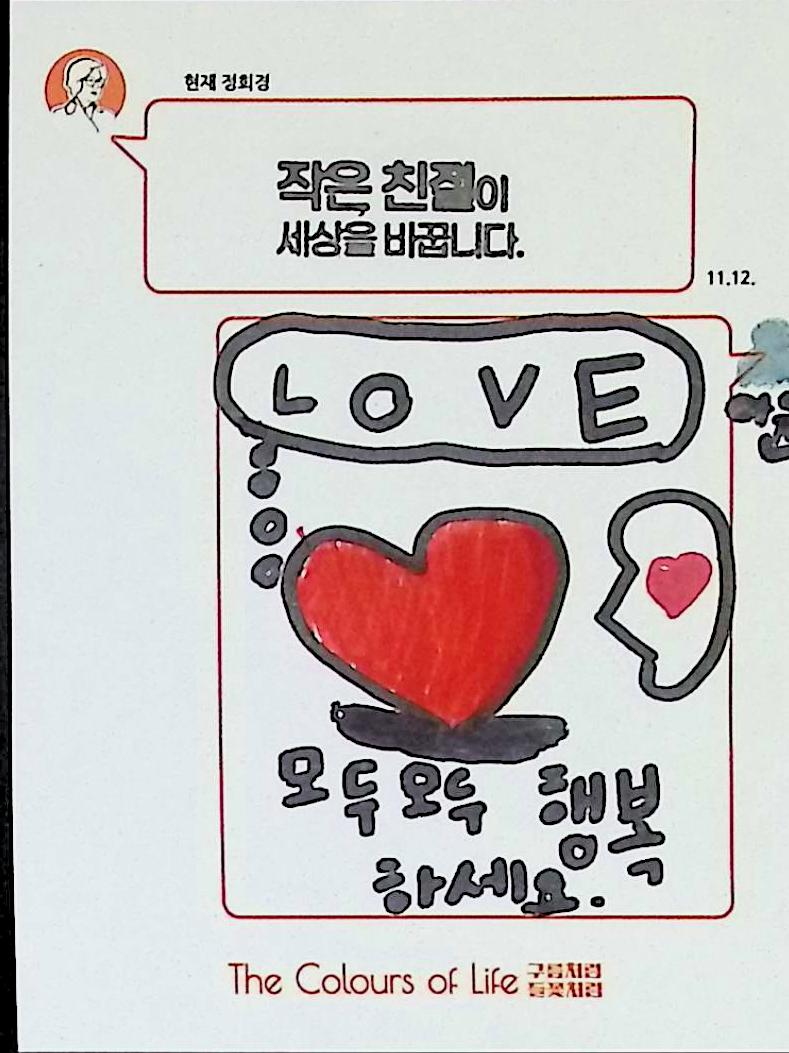 현재 정회경
작은 친절이
세상을 바꿉니다.
11.12.
LOVE
모두모두 행복
하세요.
The Colours of Life 구름처럼
들꽃처럼